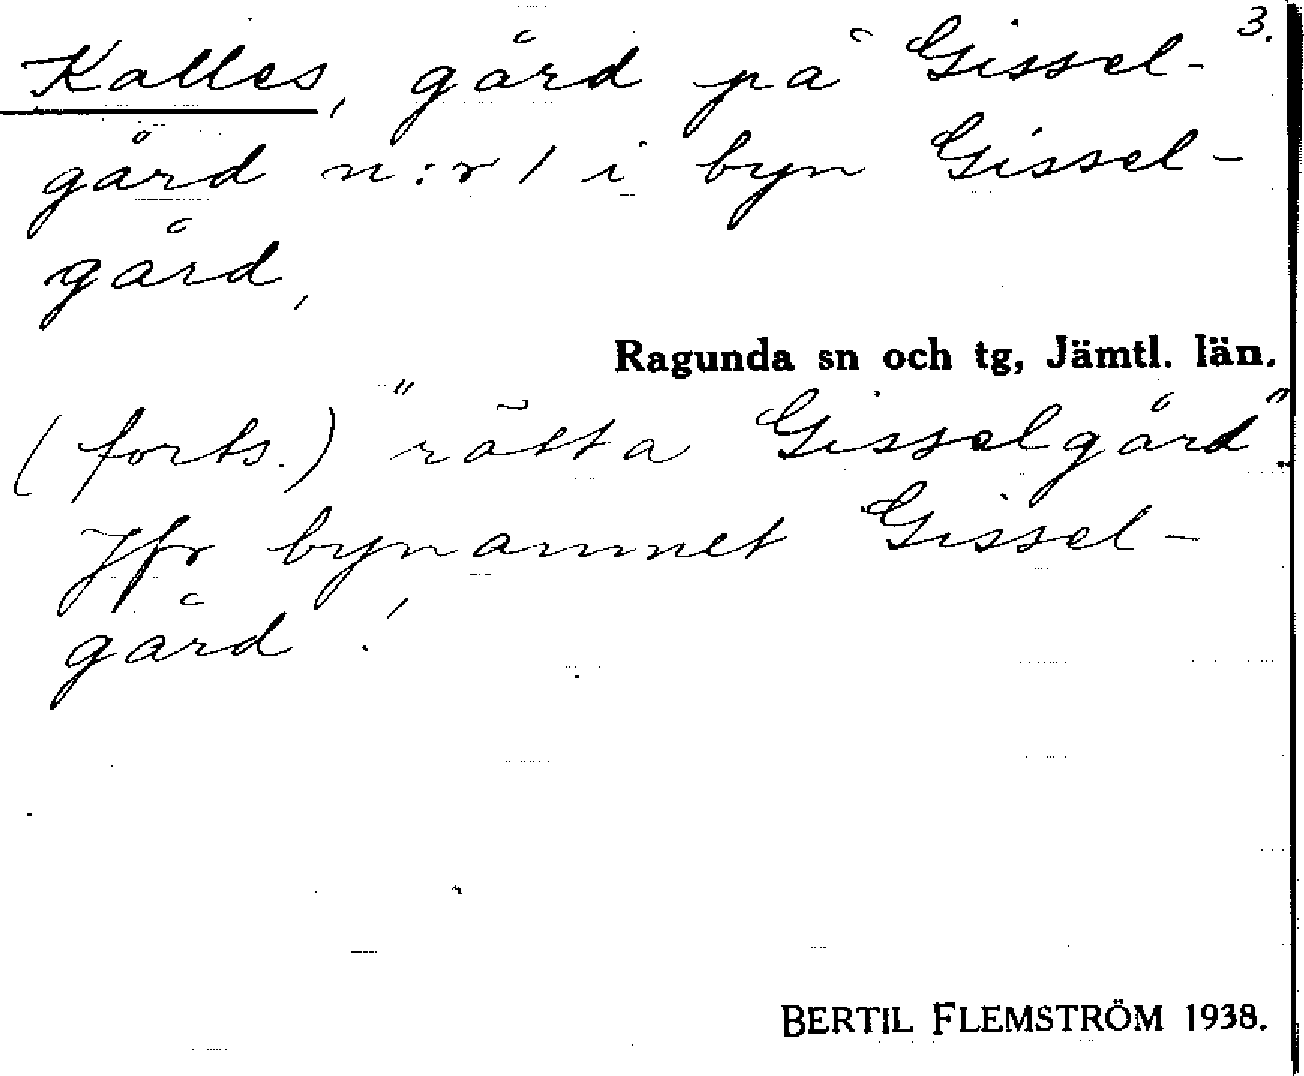 3.
Kalles, gård på Gissel-
gård n:r 1 i byn Gissel-
gård,
Ragunda sn och tg, Jämtl. län.
(forts.) "rätta Gisselgård".
Jfr bynamnet Gissel-
gård!
BERTIL FLEMSTRÖM 1938.